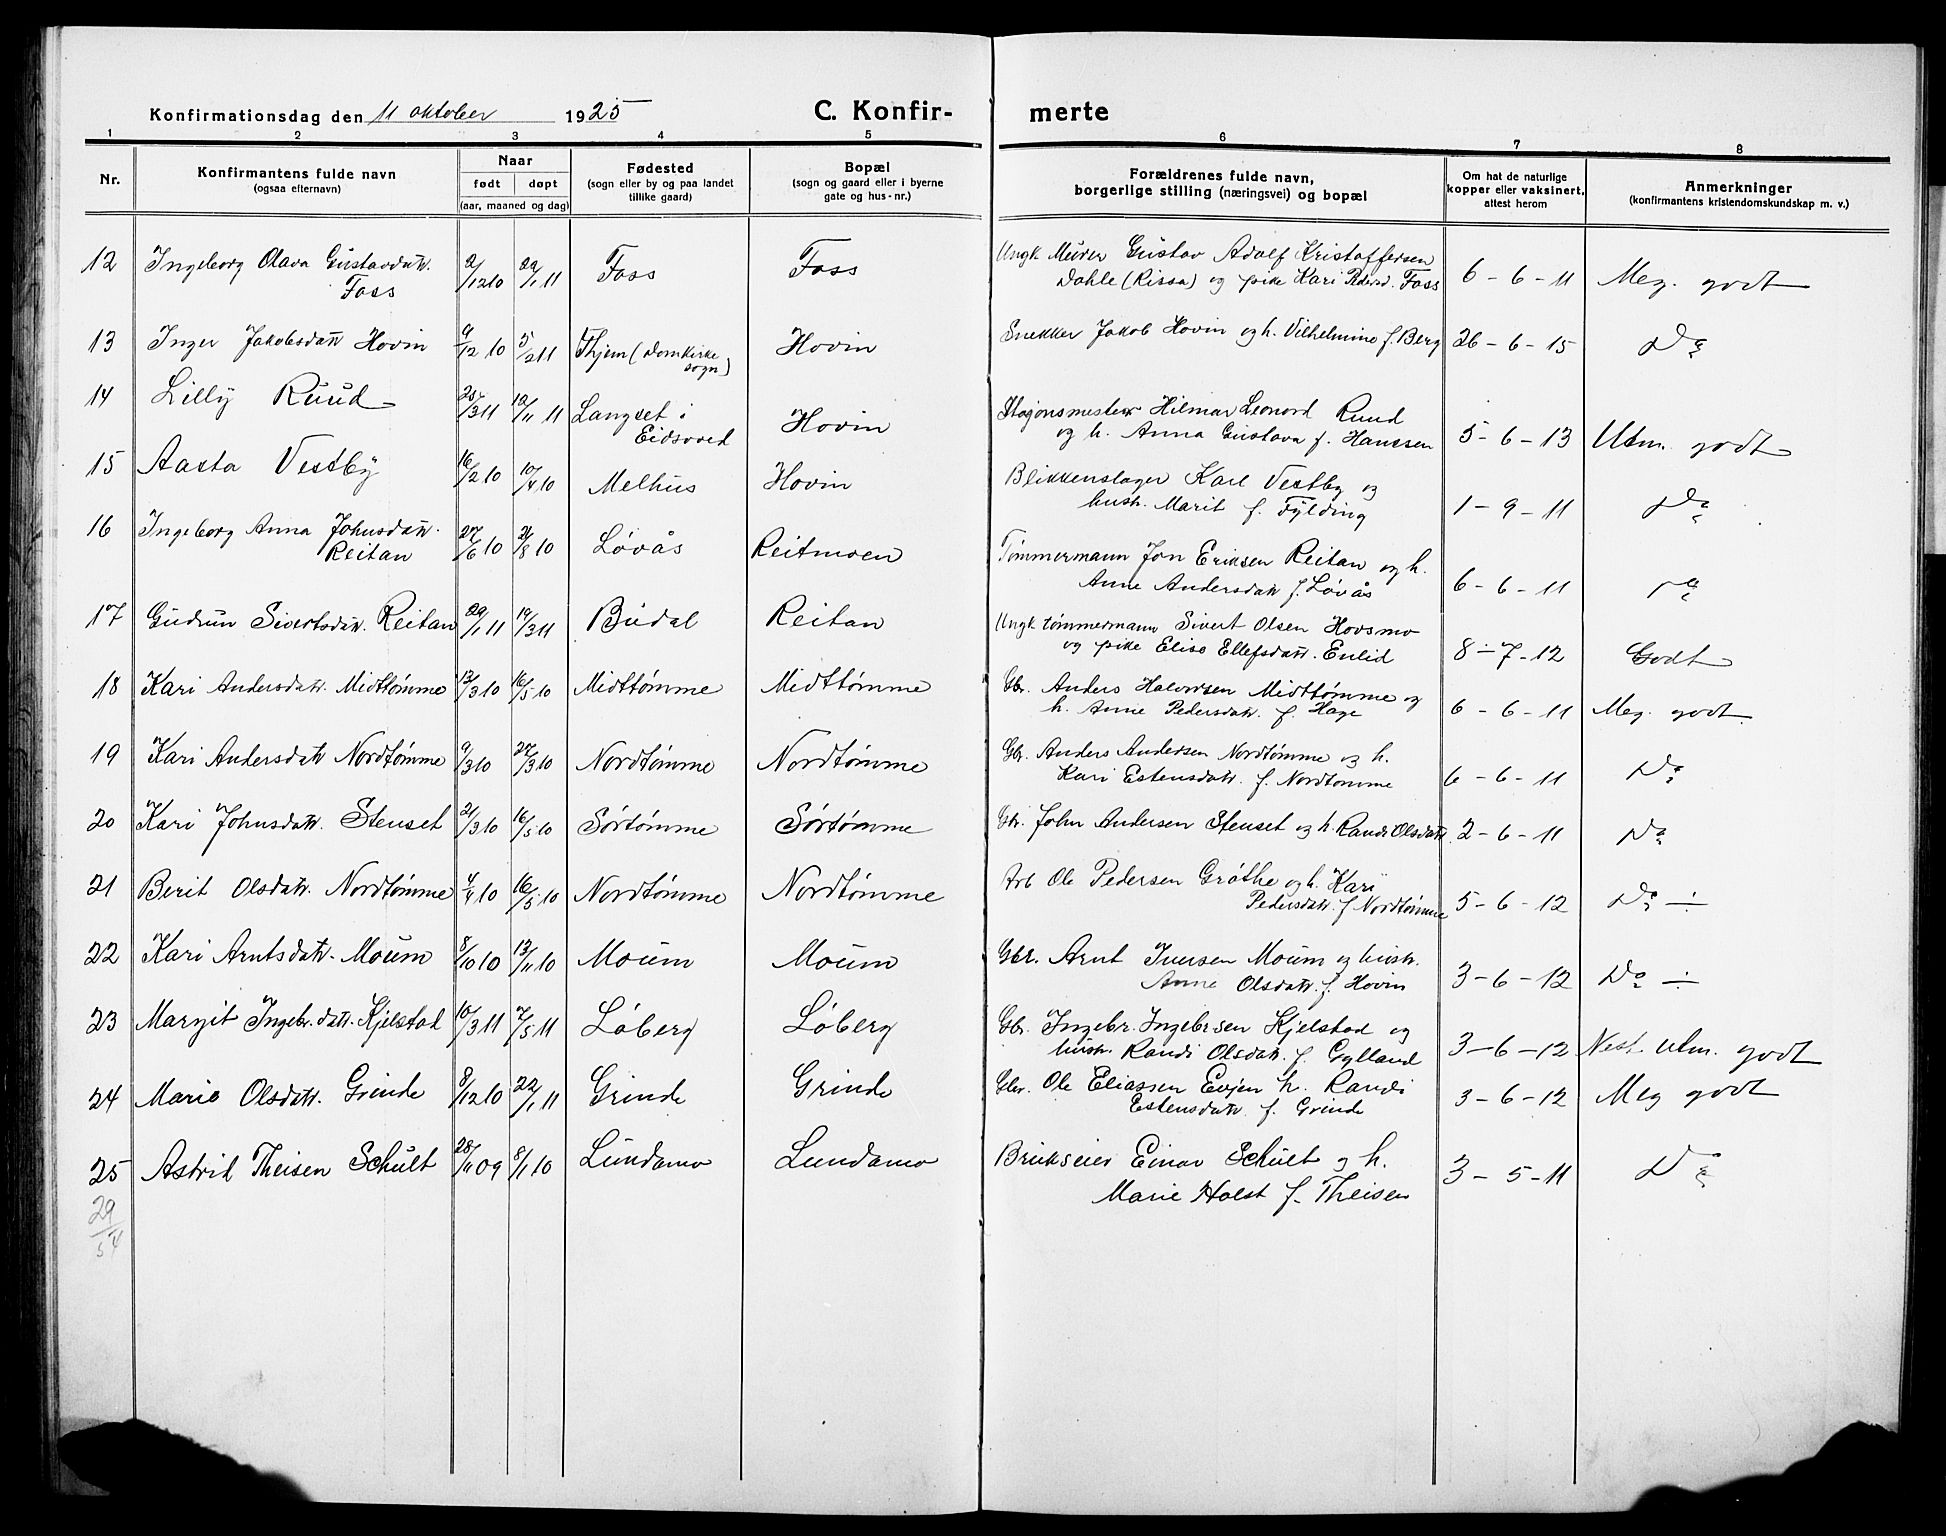 Konfirmationsdag den 11 oktober 1925 C. Konfir- merte
1 2 3 4 5 6 7 8
Nr. Konfirmantens fulde navn (ogsaa efternavn) Naar født døpt (aar, maaned og dag) Fødested (sogn eller by og paa landet tillike gaard) Bopæl (sogn og gaard eller i byerne gate og hus-nr.) Forældrenes fulde navn, borgerlige stilling (næringsvei) og bopæl Om hat de naturlige kopper eller vaksinert, attest herom Anmerkninger (konfirmantens kristendomskundskap m. v.)
12 Ingeborg Olava Gustavdatr. Foss 2/12 10 22/1 11 Foss Foss Ungk. Murer Gustav Adolf Kristoffersen
Dahle (Rissa) og pike Kari Pedersd. Foss 6-6-11 Meg. godt
13 Inger Jakobsdatt Hovin 9/12 10 5/2 11 Thjem (Domkirke sogn) Hovin Snekker Jakob Hovin og h. Vilhelmine f. Berg 26-6-15 Do
14 Lilly Ruud 25/3 11 12/11 11 Langset i Eidsvold Hovin Stasjonsmester Hilmar Leonord Ruud
og h. Anna Gustava f. Hanssen 5-6-13 Utm. godt
15 Aasta Vestby 16/2 10 10/4 10 Melhus Hovin Blikkenslager Karl Vestby og
hustr. Marit f. Fylding 1-9-11 Do
16 Ingeborg Anna Johnsdatr. Reitan 27/6 10 21/8 10 Løvås Reitmoen Tømmermann Jon Eriksen Reitan og h.
Anne Andersdatr f. Løvås 6-6-11 Do
17 Gudrun Sivertsdatr. Reitan 29/1 11 19/3 11 Budal Reitan Ungk tømmermann Sivert Olsen Hovsmo
og pike Elise Ellefsdatr. Enlid 8-7-12 Godt
18 Kari Andersdatr. Midttømme 13/3 10 16/5 10 Midttømme Midttømme Gbr. Anders Halvorsen Midttømme og
h. Anne Pedersdatr. f. Hage 6-6-11 Meg. godt
19 Kari Andersdatr Nordtømme 9/3 10 27/3 10 Nordtømme Nordtømme Gbr. Anders Andersen Nordtømme og h.
Kari Estensdatr. f. Nordtømme 6-6-11 Do
20 Kari Johnsdatr. Stenset 21/3 10 16/5 10 Sørtømme Sørtømme Gbr. John Andersen Stenset og h. Randi Olsdatr. 2-6-11 Do
21 Berit Olsdatr. Nordtømme 4/4 10 16/5 10 Nordtømme Nordtømme Arb Ole Pedersen Grøthe og h. Kari
Pedersdatr. f. Nordtømme 5-6-12 Do ÷
22 Kari Arntsdatr. Moum 8/10 10 13/11 10 Moum Moum Gbr. Arnt Iversen Moum og hustr.
Anne Olsdatr. f. Hovin 3-6-12 Do ÷
23 Margit Ingebr.datr. Kjelstad 10/3 11 7/5 11 Løberg Løberg Gbr. Ingebr. Ingebrsen Kjelstad og
hustr. Randi Olsdatr. f. Gylland 3-6-12 Nest utm. godt
24 Marie Olsdatr. Grinde 8/12 10 22/1 11 Grinde Grinde Gbr. Ole Eliassen Evjen h. Randi
Estensdatr f. Grinde 3-6-12 Meg godt
25 Astrid Theisen Schult 28/11 09 8/1 10 Lundamo Lundamo Brukseier Einar Schult og h.
Marie Holst f. Theisen 3-5-11 Do
29/54